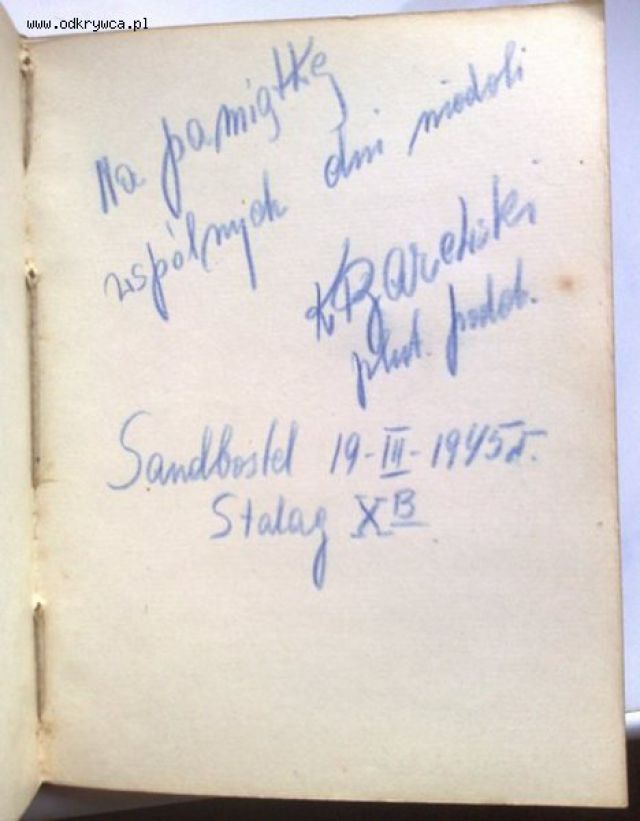 www.odkrywca.pl
Na pamiątkę
wspólnych dni niedoli
plut. podch.
Sandbostel 19-III-1945r.
Stalag XB